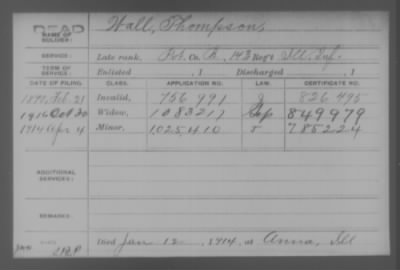 DEAD
NAME OF SOLDIER: Wall, Thompson,
SERVICE: Late rank, Pvt. Co. B, 143 Reg't Ill. Inf.
TERM OF SERVICE: Enlisted , 1 Discharged , 1
DATE OF FILING. CLASS. APPLICATION NO. LAW. CERTIFICATE NO.
Feb. 21 Invalid, 756991 G 826495
1916 Oct 30 Widow, 1083217 849979
1914 Apr 4 Minor, 1025410 785224
ADDITIONAL SERVICES:
REMARKS:
Died Jan 12, 1914, at Anna, Ill